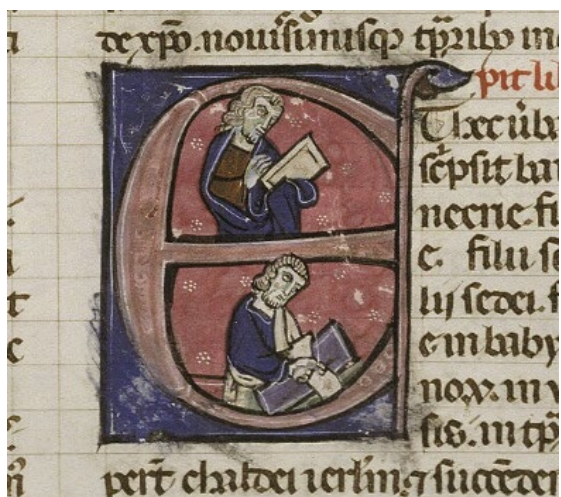 ti de xpo. nouissimisq tpribꝰ in
pit li
T hec uba
scpsit bar
neerie. fi
e. filii se
lij sedei. f
e in baby
nox. in v
sis. in tp
m perᷓt chaldei ierlm. ⁊ succeder